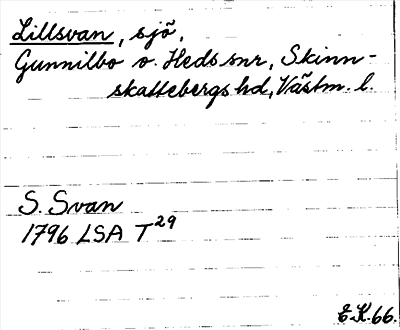 Lillsvan, sjö,
Gunnilbo o. Heds snr, Skinn-
skattebergs hd, Västm. l.
S. Svan
1796 LSA T 29
E.K. 66.